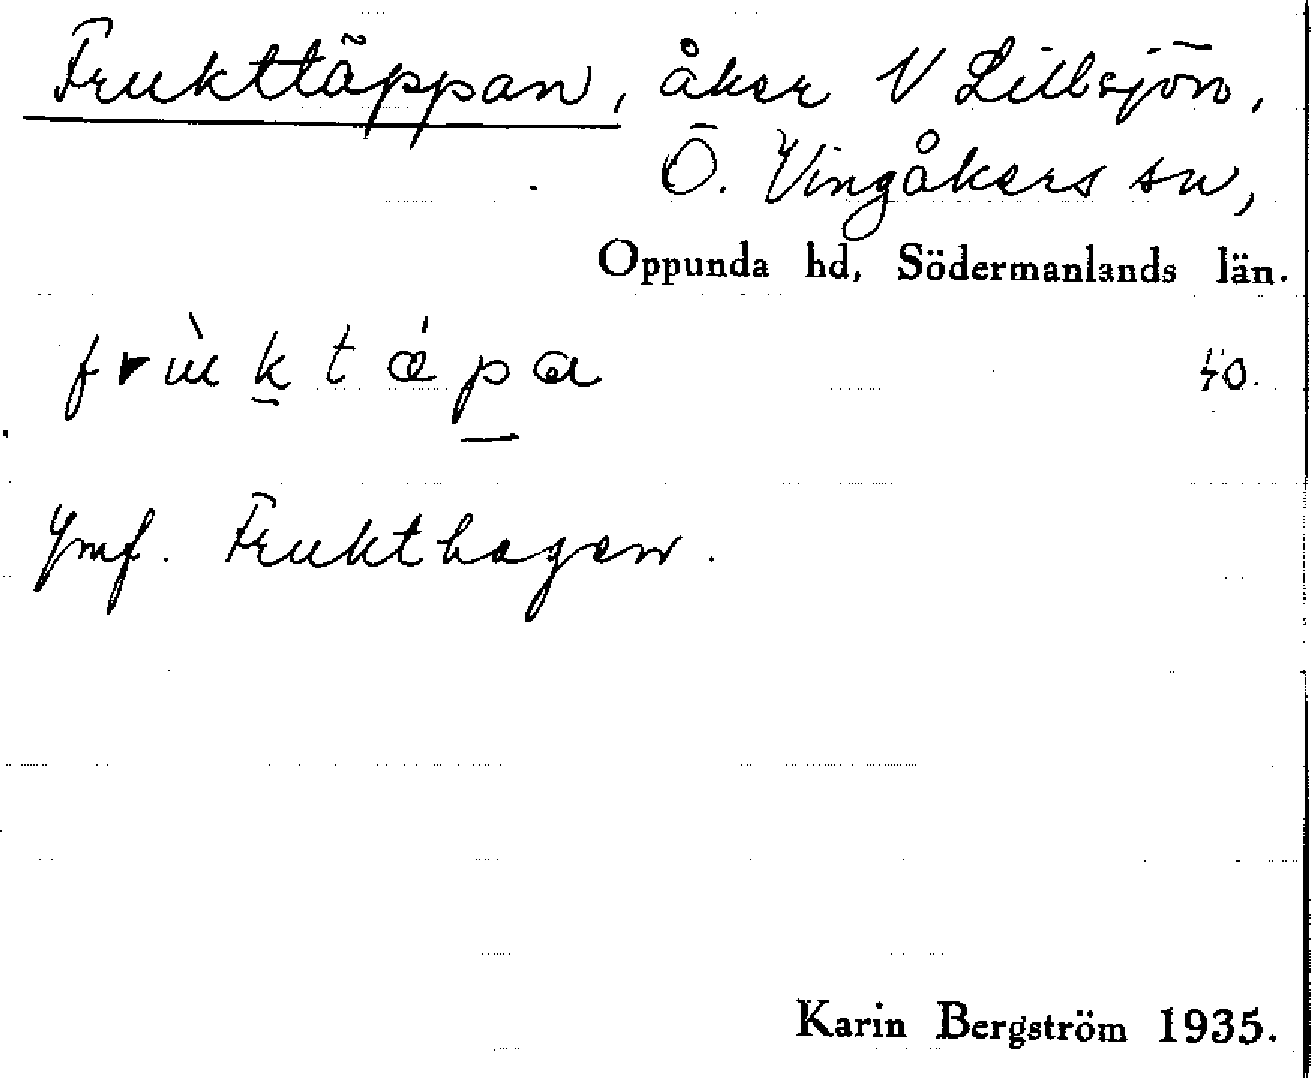 Frukttäppan, åker V Lillsjön,
Ö. Vingåkers sn,
Oppunda hd, Södermanlands län.
frùktǽpa 40.
Jmf. Frukthagen.
Karin Bergström 1935.